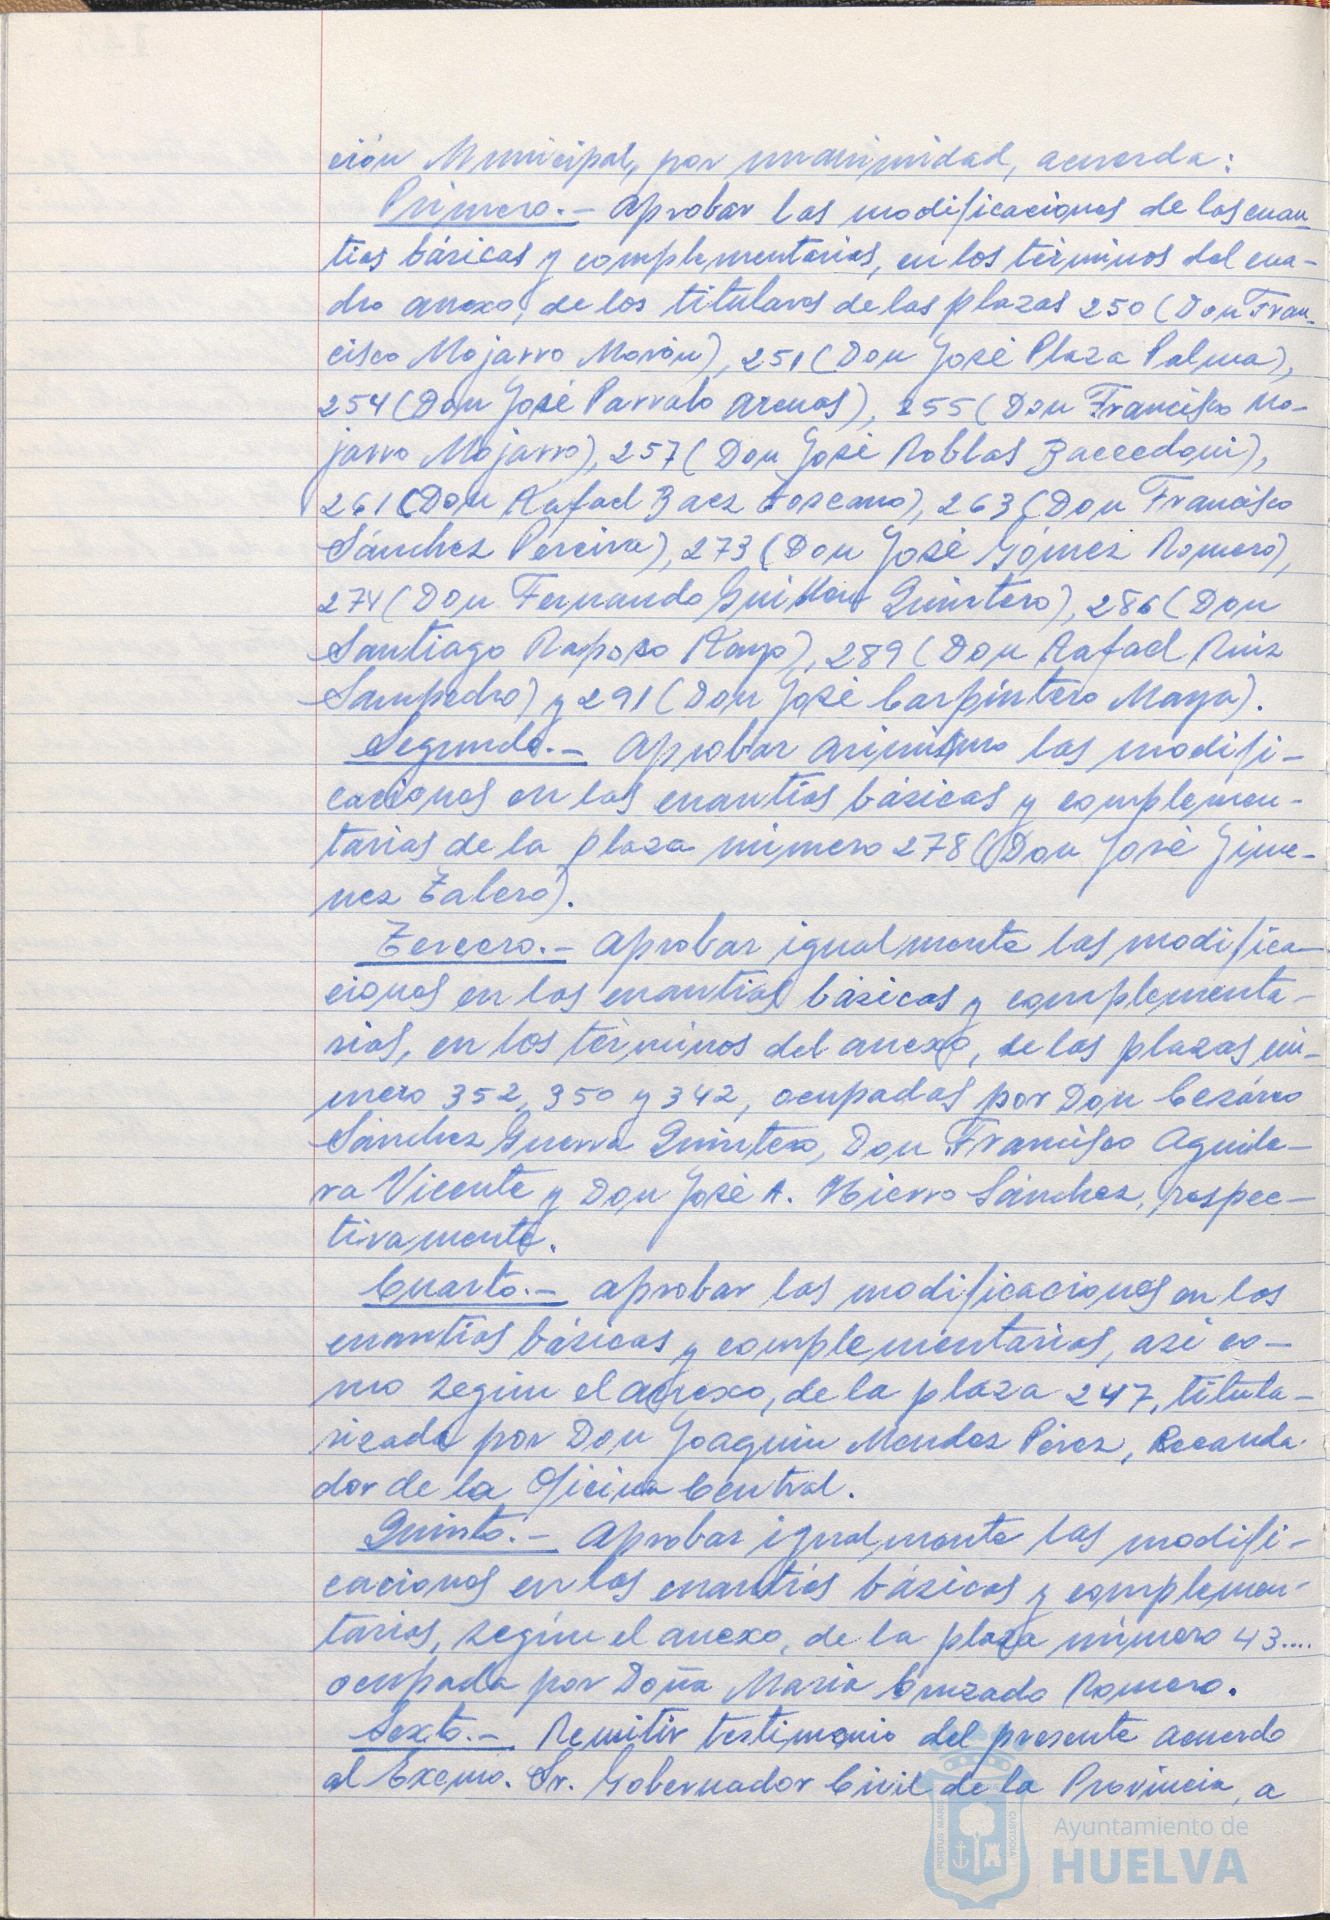 ción Municipal, por unanimidad, acuerda:
Primero.- Aprobar las modificaciones de las cuan-
tías básicas y complementarias, en los términos del cua-
dro anexo, de los titulares de las plazas 250 (Don Fran-
cisco Mojarro Morón), 251 (Don José Plaza Palma),
254 (Don José Parralo Arenas), 255 (Don Francisco Mo-
jarro Mojarro), 257 (Don José Robles
261 (Don Rafael Baez Toscano), 263 (Don Francisco
Sánchez Pereira), 273 (Don José Gómez Romero),
274 (Don Fernando Guillen Quintero), 286 (Don
Santiago Raposo Rayo), 289 (Don Rafael Ruiz
Sampedro) y 291 (Don José Carpintero Maya).
Segundo.- Aprobar asimismo las modifi-
caciones en las cuantías básicas y complemen-
tarias de la plaza número 278 (Don José Jime-
nez Talero).
Tercero.- Aprobar igualmente las modifica-
ciones en las cuantías básicas y complementa-
rias, en los términos del anexo, de las plazas nú-
mero 352, 350 y 342, ocupadas por Don Cesáreo
Sánchez Guerra Quintero, Don Francisco Aguile-
ra Vicente y Don José A. Hierro Sánchez, respec-
tivamente.
Cuarto.- Aprobar las modificaciones en las
cuantías básicas y complementarias, así co-
mo según el anexo, de la plaza 247, titula-
rizada por Don Joaquin Mendez Pérez, Recauda-
dor de la Oficina Central.
Quinto.- Aprobar igualmente las modifi-
caciones en las cuantías básicas y complemen-
tarias, según el anexo, de la plaza número 43....
ocupada por Doña Maria Cruzado Romero.
Sexto.- Remitir testimonio del presente acuerdo
al Excmo. Sr. Gobernador Civil de la Provincia, a
PORTUS MARIS
CUSTODIA
Ayuntamiento de
HUELVA